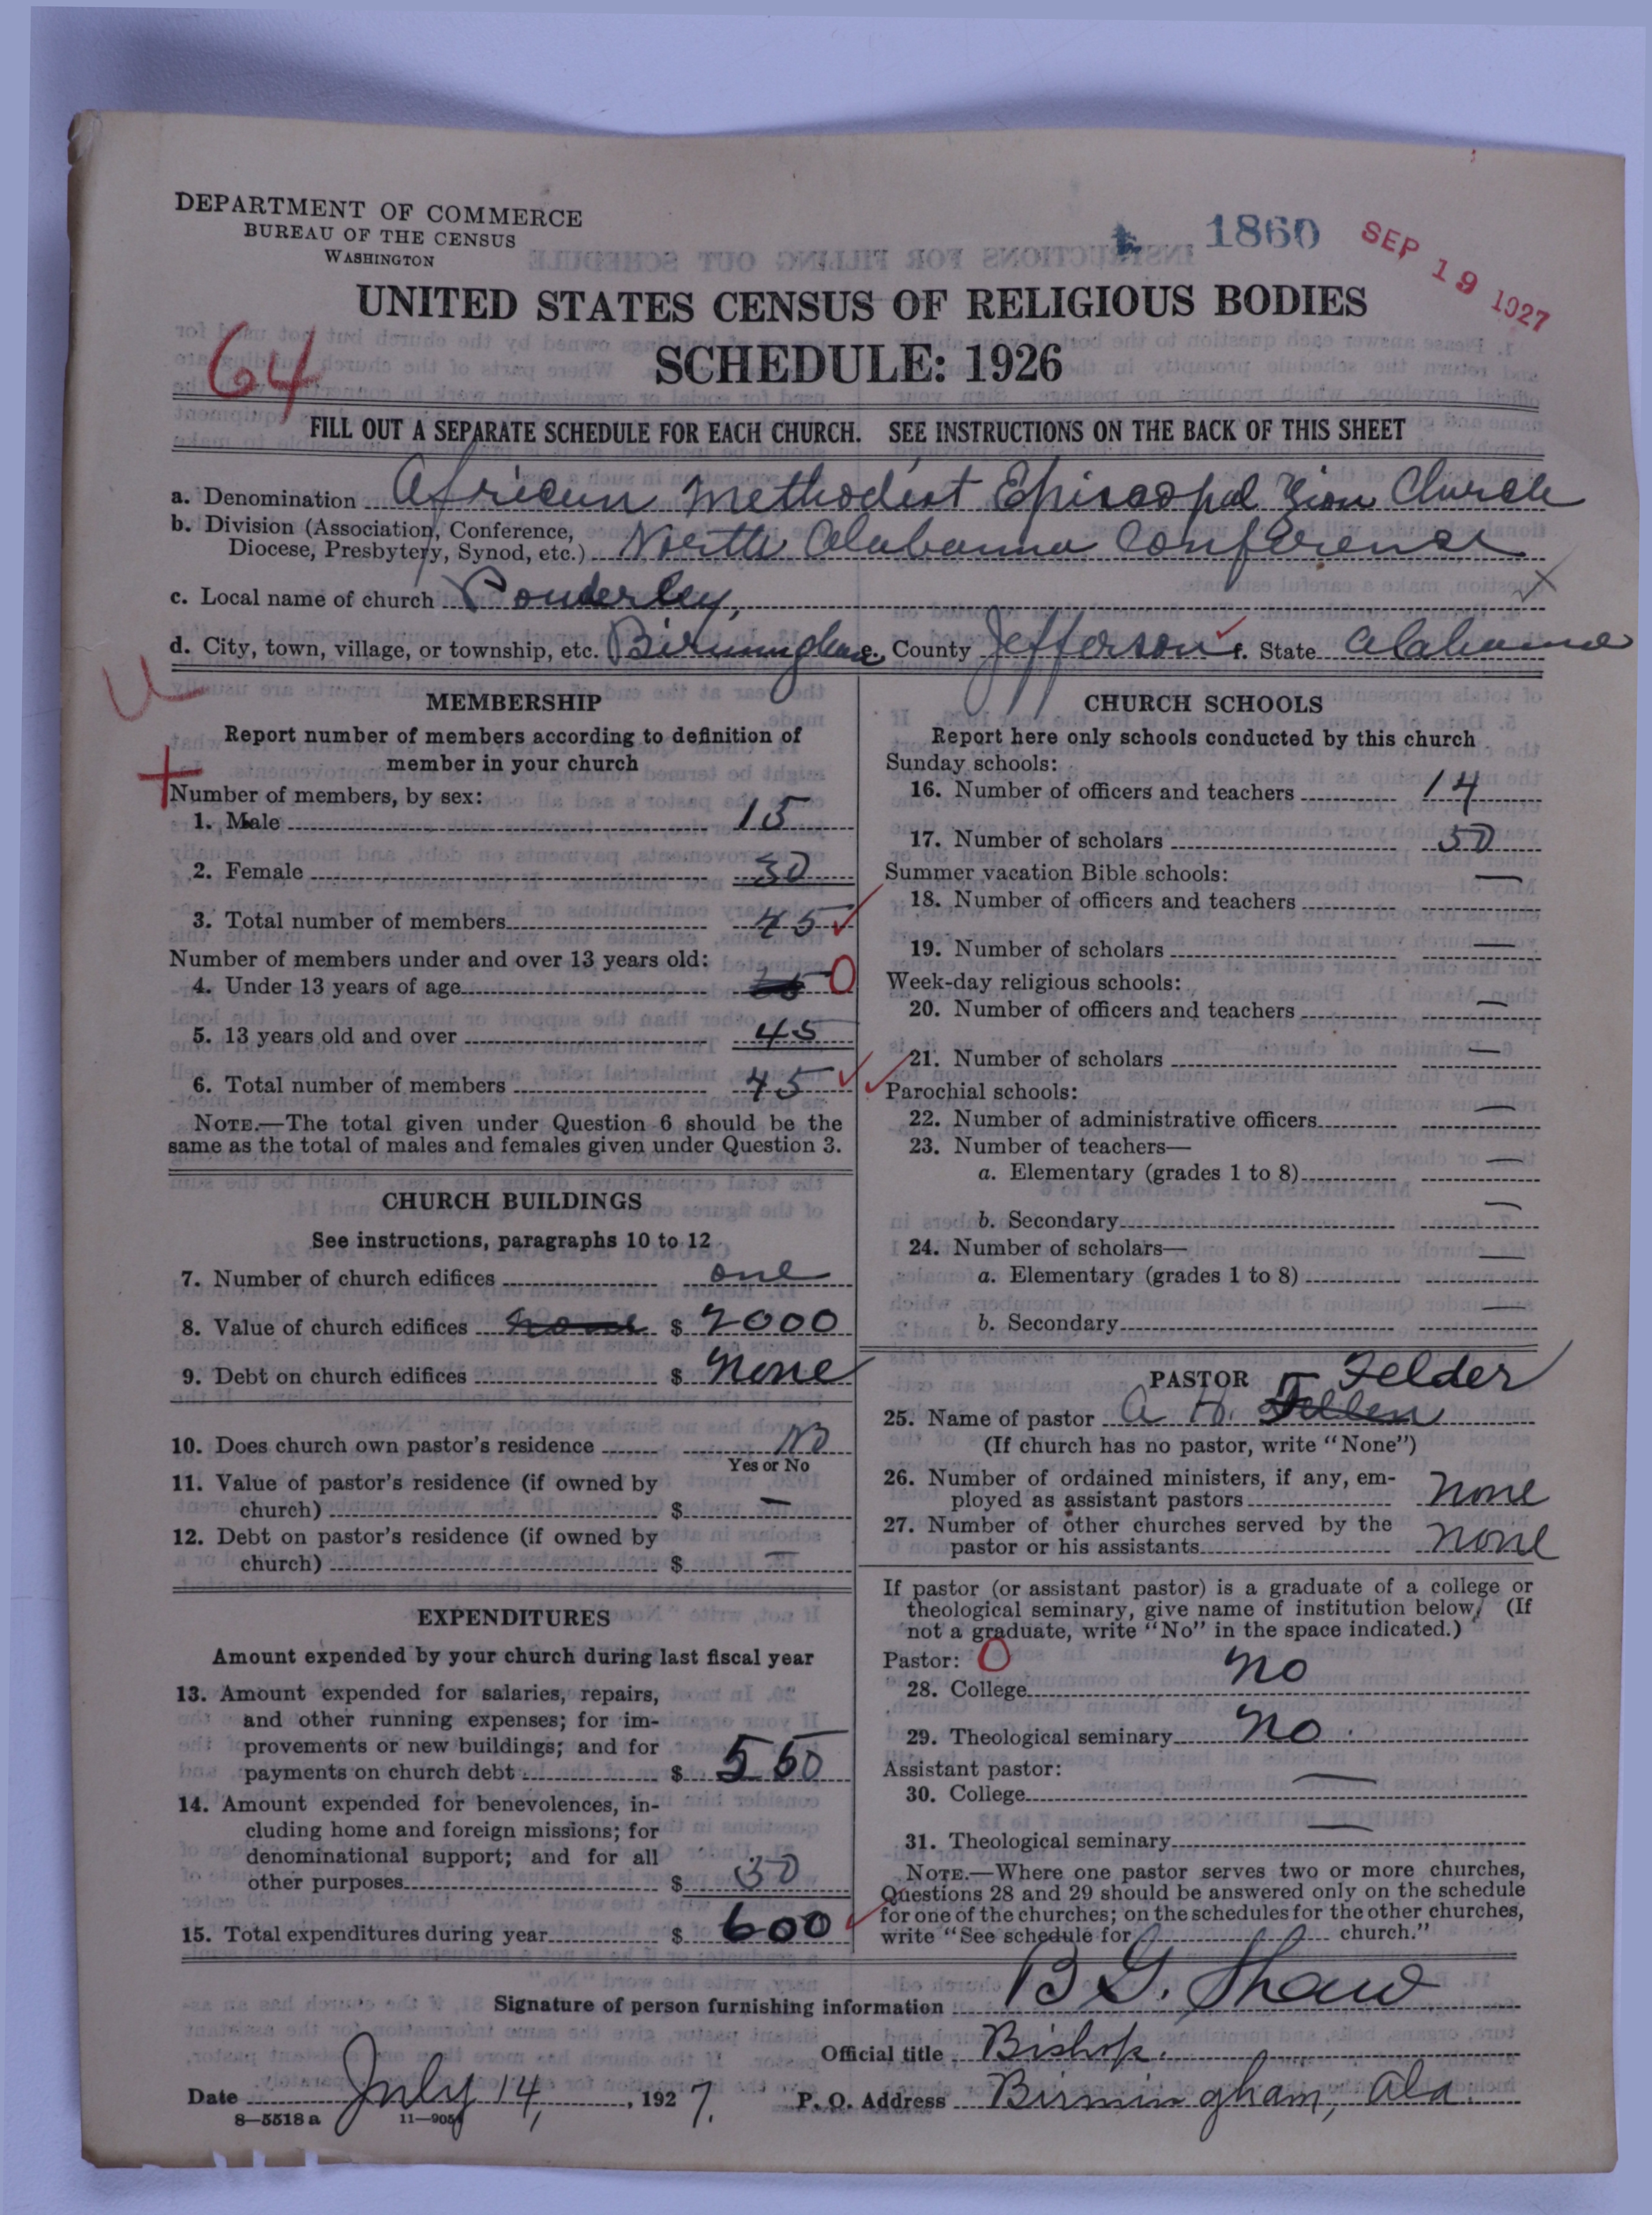 DEPARTMENT OF COMMERCE
BUREAU OF THE CENSUS
WASHINGTON
1860
SEP 19 1927
UNITED STATES CENSUS OF RELIGIOUS BODIES
64
SCHEDULE: 1926
FILL OUT A SEPARATE SCHEDULE FOR EACH CHURCH. SEE INSTRUCTIONS ON THE BACK OF THIS SHEET
a. Denomination African Methodist Episcopal Zion Church
b. Division (Association, Conference,
Diocese, Presbytery, Synod, etc.) North Alabama Conference
c. Local name of church Ponderley,
d. City, town, village, or township, etc. Birmingham e. County Jefferson f. State Alabama
MEMBERSHIP
Report number of members according to definition of
member in your church
Number of members, by sex:
1. Male 15
2. Female 30
3. Total number of members 45
Number of members under and over 13 years old:
4. Under 13 years of age 0
5. 13 years old and over 45
6. Total number of members 45
NOTE.—The total given under Question 6 should be the
same as the total of males and females given under Question 3.
CHURCH BUILDINGS
See instructions, paragraphs 10 to 12
7. Number of church edifices one
8. Value of church edifices none $ 2000
9. Debt on church edifices $ none
10. Does church own pastor's residence No
Yes or No
11. Value of pastor's residence (if owned by
church) $ —
12. Debt on pastor's residence (if owned by
church) $ —
EXPENDITURES
Amount expended by your church during last fiscal year
13. Amount expended for salaries, repairs,
and other running expenses; for im-
provements or new buildings; and for
payments on church debt $ 550
14. Amount expended for benevolences, in-
cluding home and foreign missions; for
denominational support; and for all
other purposes $ 30
15. Total expenditures during year $ 600
CHURCH SCHOOLS
Report here only schools conducted by this church
Sunday schools:
16. Number of officers and teachers 14
17. Number of scholars 50
Summer vacation Bible schools:
18. Number of officers and teachers —
19. Number of scholars —
Week-day religious schools:
20. Number of officers and teachers —
21. Number of scholars —
Parochial schools:
22. Number of administrative officers —
23. Number of teachers—
a. Elementary (grades 1 to 8) —
b. Secondary —
24. Number of scholars—
a. Elementary (grades 1 to 8) —
b. Secondary —
PASTOR Felder
25. Name of pastor A H.
(If church has no pastor, write "None")
26. Number of ordained ministers, if any, em-
ployed as assistant pastors none
27. Number of other churches served by the
pastor or his assistants none
If pastor (or assistant pastor) is a graduate of a college or
theological seminary, give name of institution below. (If
not a graduate, write "No" in the space indicated.)
Pastor: 0
28. College no
29. Theological seminary no.
Assistant pastor:
30. College —
31. Theological seminary —
NOTE.—Where one pastor serves two or more churches,
Questions 28 and 29 should be answered only on the schedule
for one of the churches; on the schedules for the other churches,
write "See schedule for church."
Signature of person furnishing information B G. Shaw
Official title Bishop.
Date July 14, 1927. P. O. Address Birmingham, Ala.
8—5518 a 11—9051